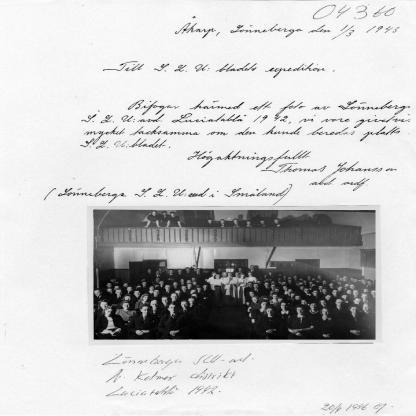 04360
Åkarp, Lönneberga den 1/3 1943
Till S. L. U: bladets expedition.
Bifogar härmed ett foto av Lönneberga
S. L. U:avd. Luciatablå 1942, vi vore givetvis
mycket tacksamma om den kunde beredas plats i
S. L. U:bladet.
Högaktningsfullt
Thomas Johansson
avd ordf
( Lönneberga S. L. U:avd i Småland)
Lönneberga SLU-avd.
Kalmar distrikt
Luciatablå 1942.